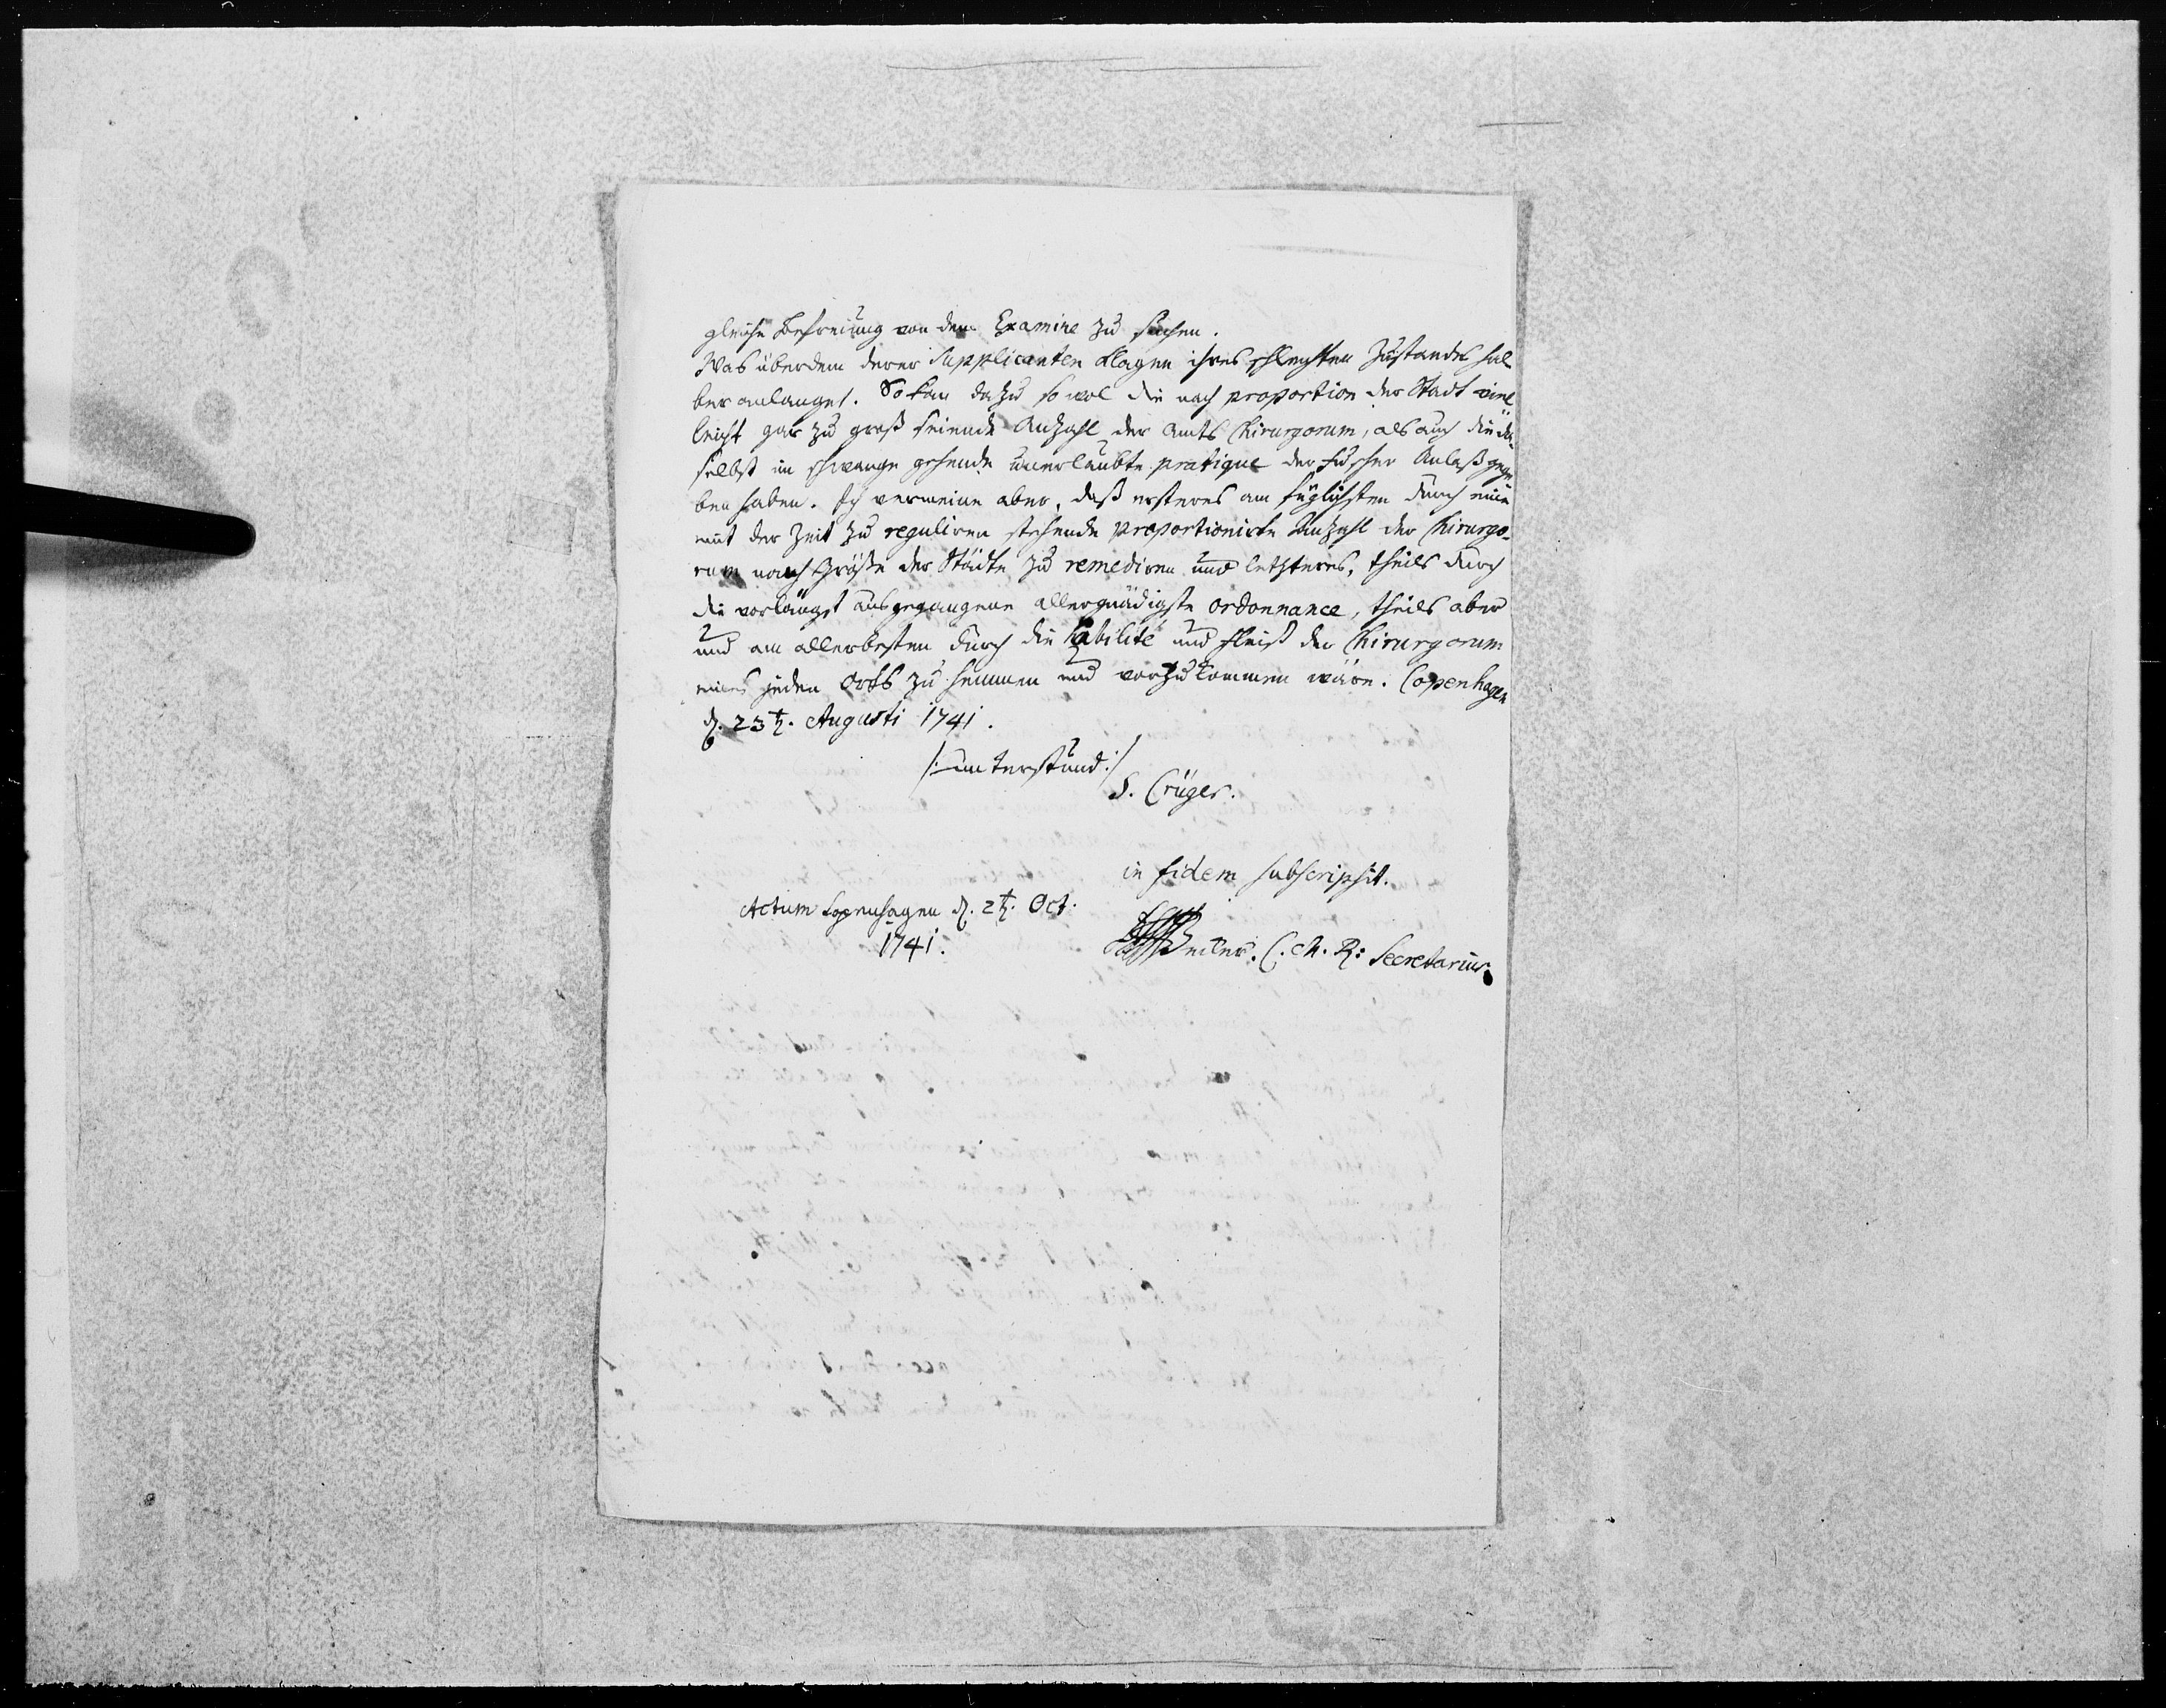 gleiche Befreiung von dem Examine zu suchen.
Was überdem derer Supplicanten Klagen ihres schlechten Zustandes hal
ber anlanget. So kan dazu so wol die nach proportion der Stadt viel
leicht gar zu groß seiende Anzahl der Amts Chirurgorum, als auch die da¬
selbst im schwange gehende unerlaubte pratique der Fuscher Anlaß gege
ben haben. Ich vermeine aber, daß ersteres am füglichsten durch eine
mit der Zeit zu reguliren stehende proportionirte Anzahl der Chirurgo¬
rum nach Größe der Städte zu remediren und letzteres, theils durch
die vorlängst ausgegangene allergnädigste ordonnance, theils aber
und am allerbesten durch die habilité und Fleiß der Chirurgorum
eines jeden Orts zu hemmen und vorzukommen wäre. Copenhagen
d. 23t. Augusti 1741.
/: unterstund :/
S. Crüger.
in fidem subscripsit.
Actum Copenhagen d. 2t. Oct.
1741.
C. M. R: Secretarius.